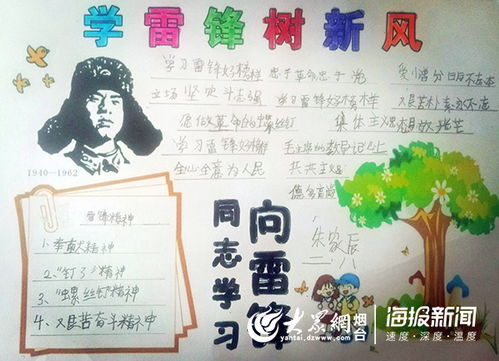 学雷锋树新风
学习雷锋好榜样 忠于革命忠于党
爱憎分明不忘本
立场坚定斗志强 学习雷锋好榜样 艰苦朴素永不忘
愿做革命的螺丝钉 集体主义思想放光芒
学习雷锋好榜样 毛主席的教导记心上
全心全意为人民 共产主义
德多高尚
1940—1962
雷锋精神
1、奉献精神
2、“钉子”精神
3、“螺丝钉”精神
4、艰苦奋斗精神
向雷锋
同志学习
朱家辰
二、八
大众网 烟台
yantai.dzwww.com
海报新闻
速度·深度·温度